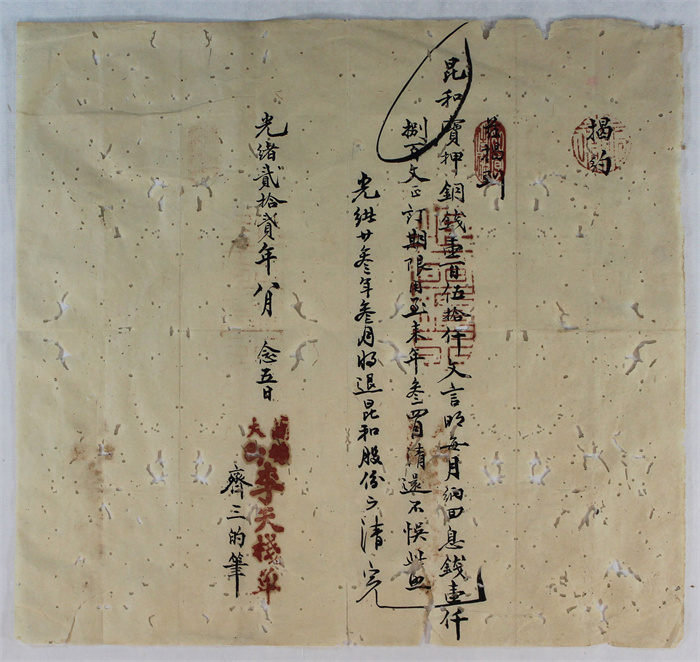 揭約
茲揭到
昆和寶押銅錢壹百伍拾仟文言明每月納田息錢壹仟
捌百文正訂期限用至來年叁四月清還不悞此照
光緒廿叁年叁月將退昆和股份之清完
光緒貳拾貳年八月 念五日
李天棧單
齊三的筆